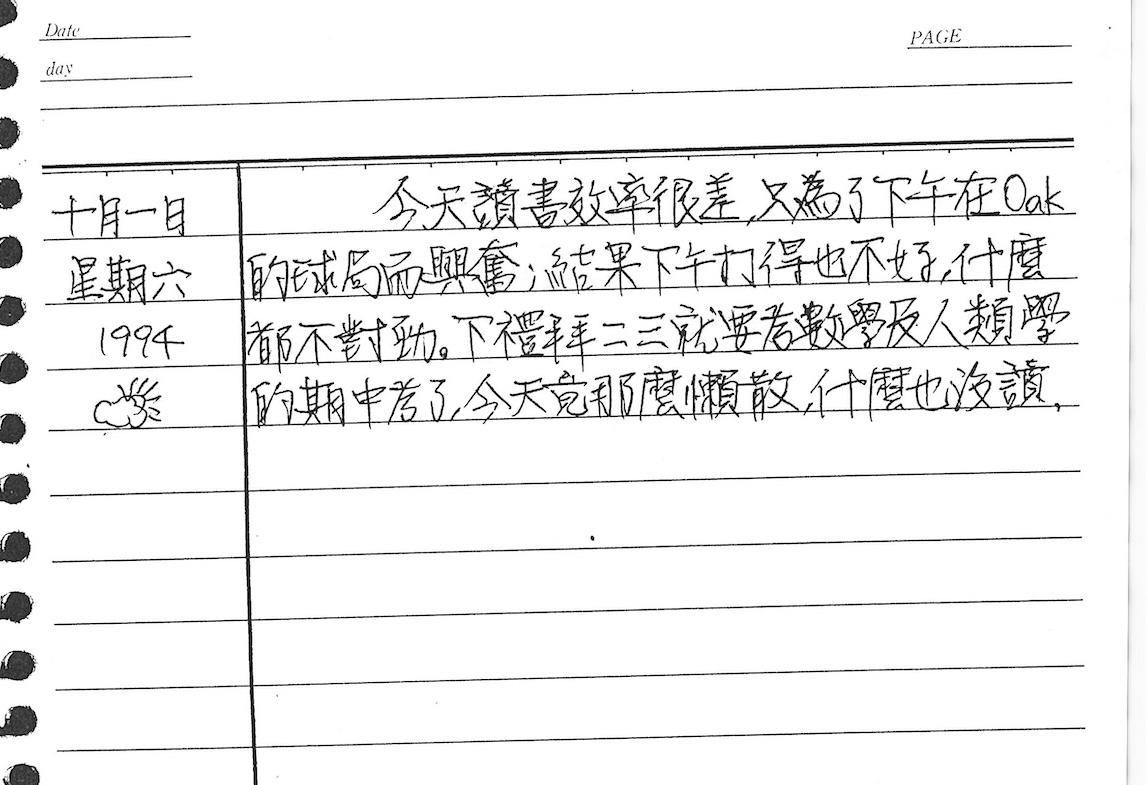 Date
PAGE
day
十月一日
星期六
1994
今天讀書效率很差,只為了下午在Oak
的球局而興奮;結果下午打得也不好,什麼
都不對勁。下禮拜二三就要考數學及人類學
的期中考了,今天竟那麼懶散,什麼也沒讀.